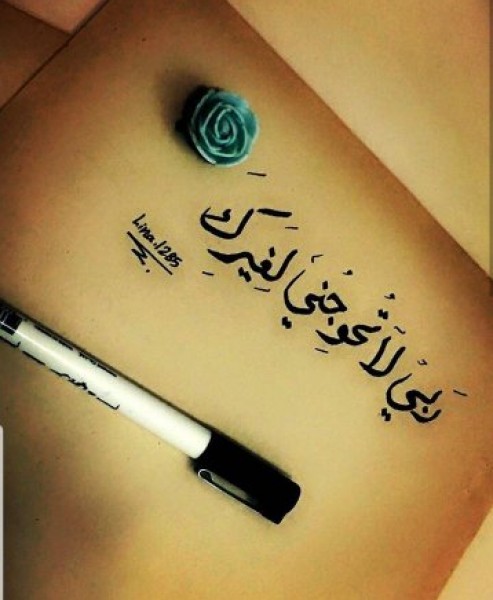 رَبيْ لَا تُحوِجْنيْ لِغيرِكَ
Lina.1285